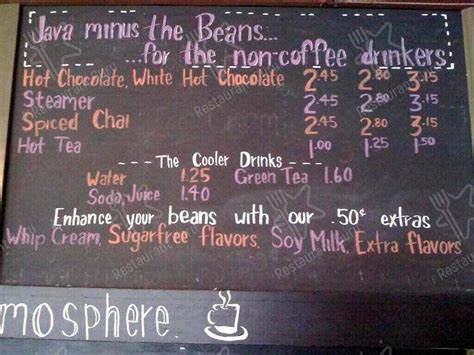 Java minus the Beans...
...for the non-coffee drinkers
Hot Chocolate, White Hot Chocolate 2.45 2.80 3.15
Steamer 2.45 2.80 3.15
Spiced Chai 2.45 2.80 3.15
Hot Tea 1.00 1.25 1.50
The Cooler Drinks
Water 1.25 Green Tea 1.60
Soda, Juice 1.40
Enhance your beans with our .50¢ extras
Whip Cream, Sugarfree flavors, Soy Milk, Extra flavors
mosphere.